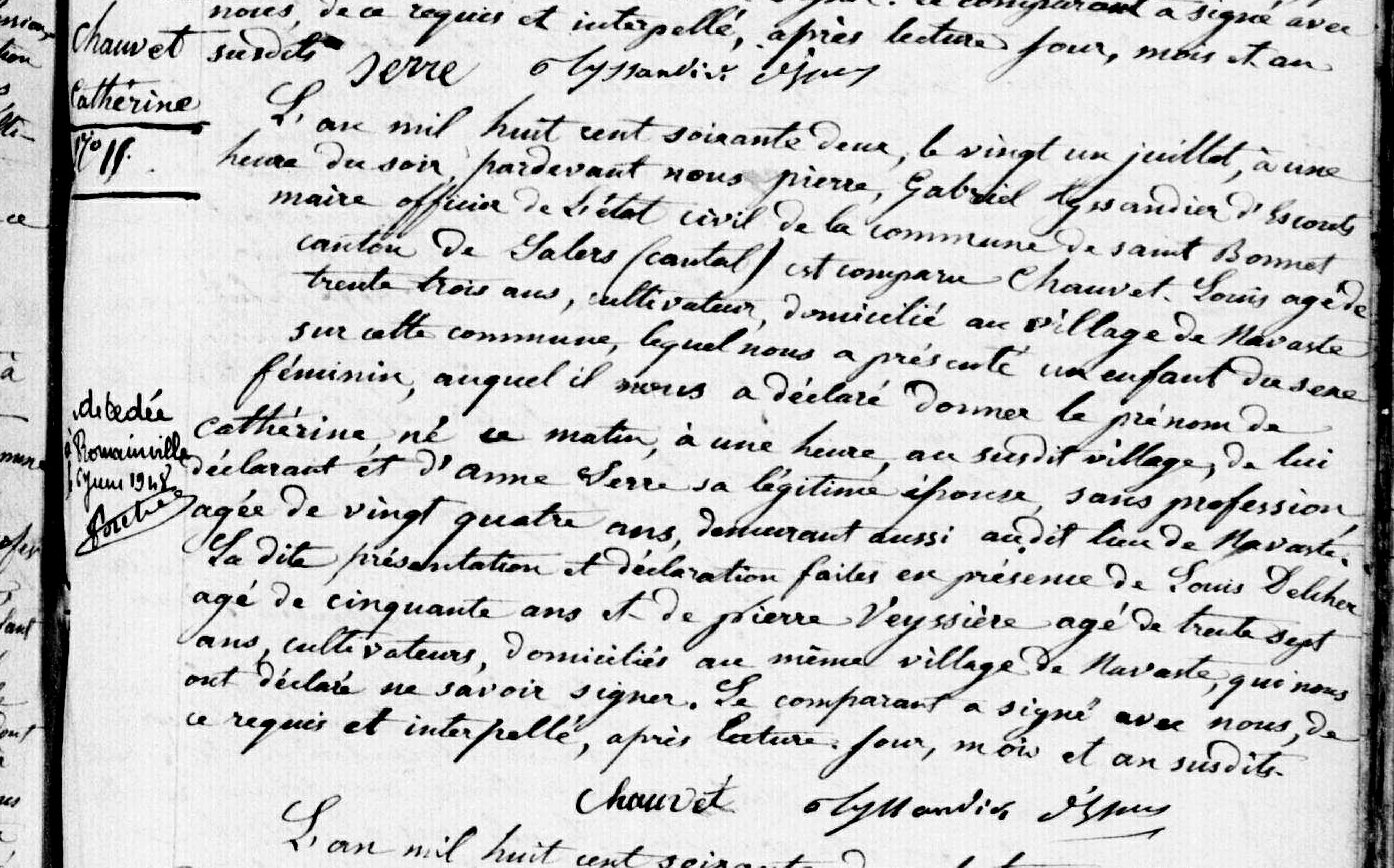 nous, de ce requis et interpellé, après lecture. Jour, mois et an
susdits
Serre
Chauvet
Cathérine
N° 15.
L'an mil huit cent soixante deux, le vingt un juillet, à une
heure du soir, pardevant nous pierre, Gabriel Hyssandier d'Escouts
maire officier de L'état civil de la commune de saint Bonnet
canton de Salers (cantal) est comparu Chauvet Louis agé de
trente trois ans, cultivateur, domicilié au village de Navaste
sur cette commune, lequel nous a présenté un enfant du sexe
féminin, auquel il nous a déclaré donner le prénom de
Cathérine, né ce matin, à une heure, au susdit village, de lui
déclarant et d'anne Serre sa légitime épouse, sans profession
agée de vingt quatre ans, demeurant aussi audit lieu de Navaste.
La dite présentation et déclaration faites en présence de Louis Delcher
agé de cinquante ans et de pierre Veyssière agé de trente sept
ans, cultivateurs, domiciliés au même village de Navaste, qui nous
ont déclaré ne savoir signer. Le comparant a signé avec nous, de
ce requis et interpellé, après lecture. Jour, mois et an susdits.
décédée
à Romainville
juin 1948
Chauvet
L'an mil huit cent soixante